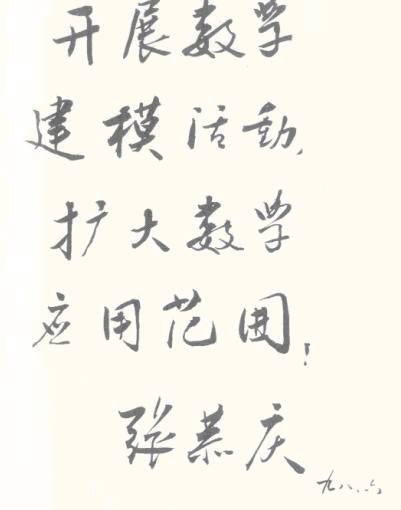 开展数学
建模活动,
扩大数学
应用范围!
张恭庆
九八.六